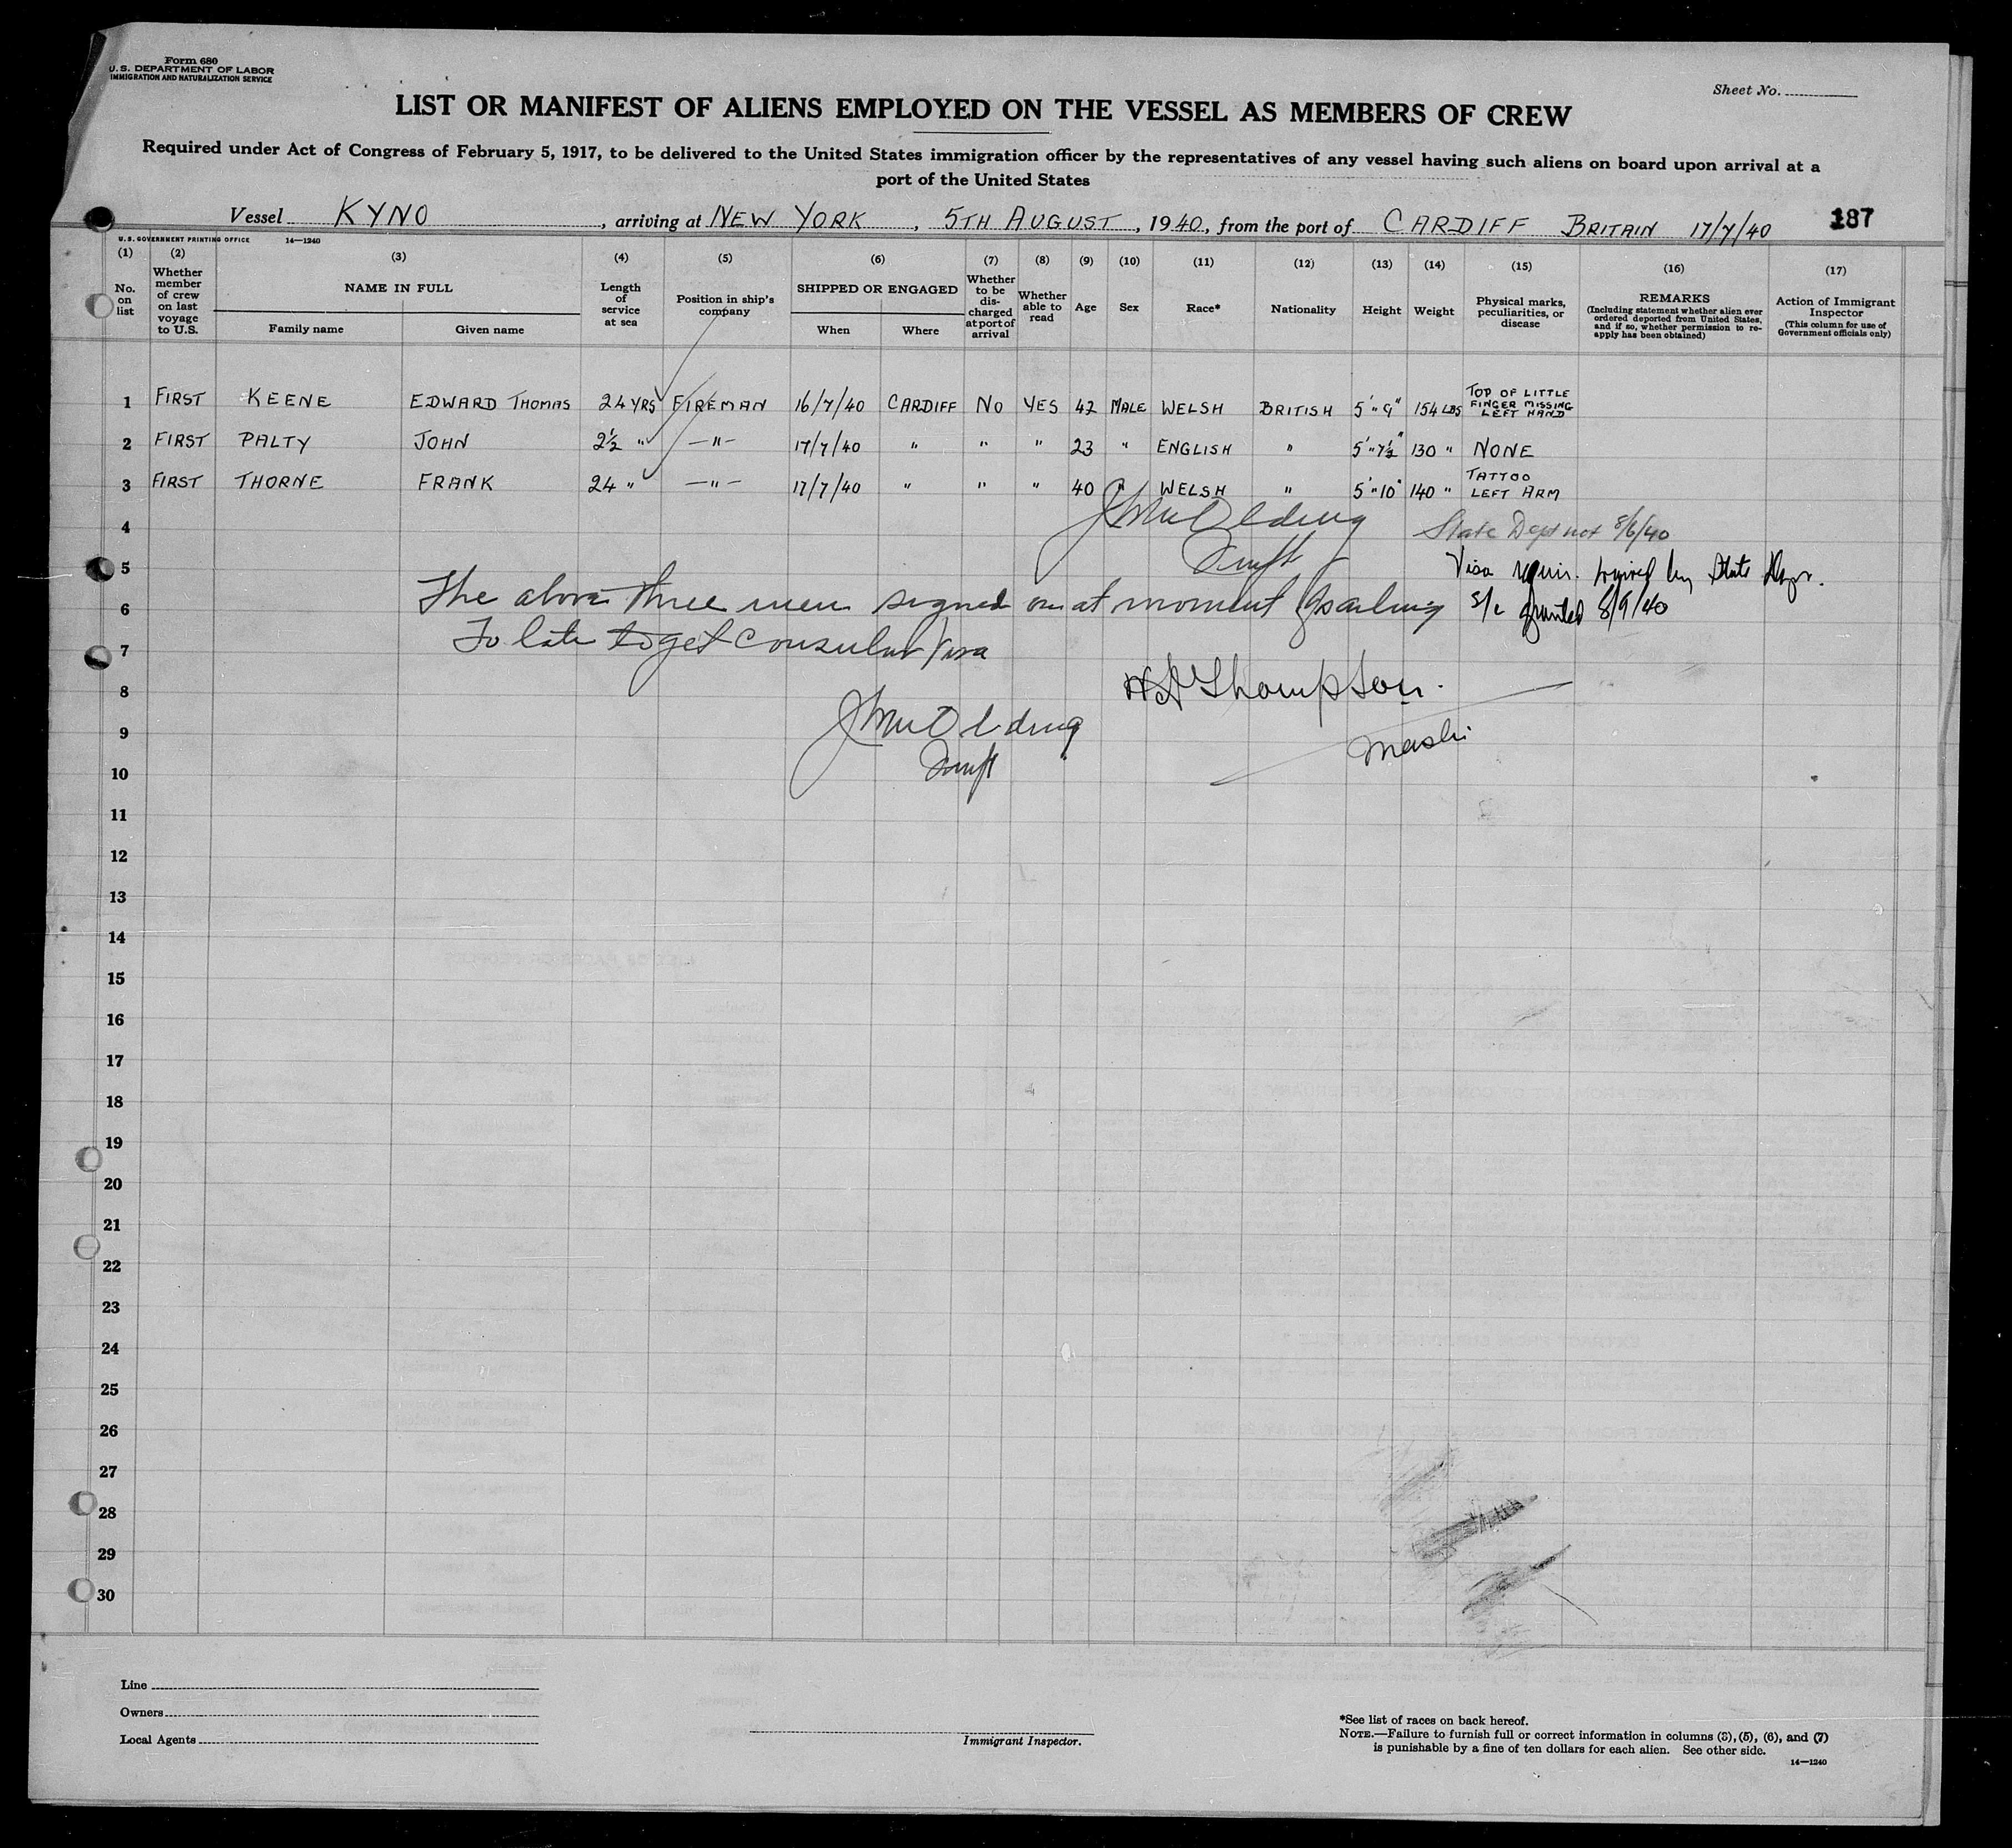 Form 680
U.S. DEPARTMENT OF LABOR
IMMIGRATION AND NATURALIZATION SERVICE
Sheet No.
LIST OR MANIFEST OF ALIENS EMPLOYED ON THE VESSEL AS MEMBERS OF CREW
Required under Act of Congress of February 5, 1917, to be delivered to the United States immigration officer by the representatives of any vessel having such aliens on board upon arrival at a
port of the United States
Vessel KYNO, arriving at NEW YORK, 5TH AUGUST, 1940, from the port of CARDIFF BRITAIN 17/7/40 187
U.S. GOVERNMENT PRINTING OFFICE 14—1240
(1) (2) (3) (4) (5) (6) (7) (8) (9) (10) (11) (12) (13) (14) (15) (16) (17)
No. on list
Whether member of crew on last voyage to U.S.
NAME IN FULL
Family name
Given name
Length of service at sea
Position in ship's company
SHIPPED OR ENGAGED
When
Where
Whether to be discharged at port of arrival
Whether able to read
Age
Sex
Race*
Nationality
Height
Weight
Physical marks, peculiarities, or disease
REMARKS
(Including statement whether alien ever ordered deported from United States, and if so, whether permission to reapply has been obtained)
Action of Immigrant Inspector
(This column for use of Government officials only)
1 FIRST KEENE EDWARD THOMAS 24 YRS FIREMAN 16/7/40 CARDIFF NO YES 42 MALE WELSH BRITISH 5'"9" 154 LBS TOP OF LITTLE FINGER MISSING LEFT HAND
2 FIRST PALTY JOHN 2½ " —"— 17/7/40 " " " 23 " ENGLISH " 5'"7½" 130 " NONE
3 FIRST THORNE FRANK 24 " —"— 17/7/40 " " " 40 " WELSH " 5'"10" 140 " TATTOO LEFT ARM
4 State Dept not 8/6/40
5 Visa requir. waived by State Dept.
6 The above three men signed on at moment of sailing S/L granted 8/9/40
7 To late to get Consular Visa
8 Thompson.
9
10
11
12
13
14
15
16
17
18
19
20
21
22
23
24
25
26
27
28
29
30
Line
Owners
Local Agents
Immigrant Inspector.
*See list of races on back hereof.
NOTE.—Failure to furnish full or correct information in columns (3), (5), (6), and (7)
is punishable by a fine of ten dollars for each alien. See other side.
14—1240